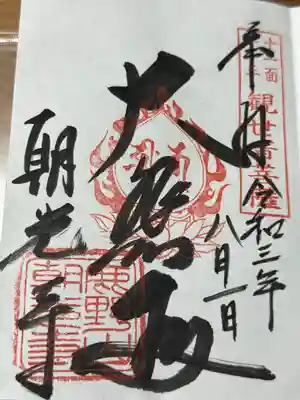 奉拝
令和三年
八月一日
大悲殿
朝光寺
観世音菩薩
鹿野山
朝光寺